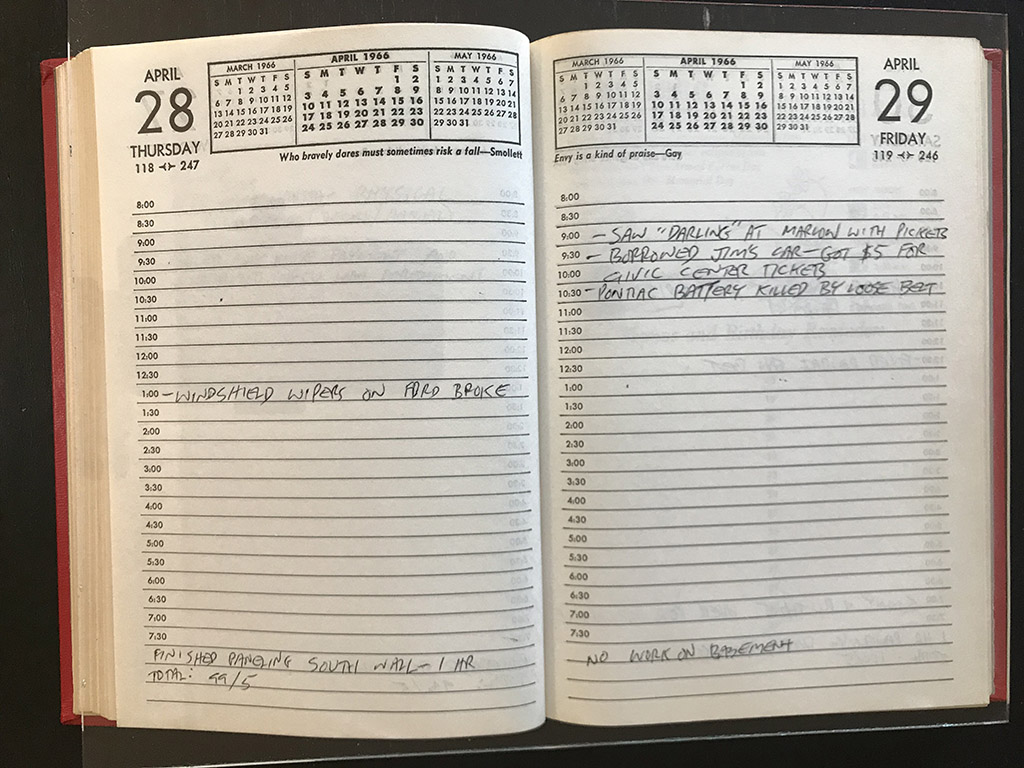 APRIL
28
THURSDAY
118 -<>- 247
MARCH 1966
S M T W T F S
1 2 3 4 5
6 7 8 9 10 11 12
13 14 15 16 17 18 19
20 21 22 23 24 25 26
27 28 29 30 31
APRIL 1966
S M T W T F S
1 2
3 4 5 6 7 8 9
10 11 12 13 14 15 16
17 18 19 20 21 22 23
24 25 26 27 28 29 30
MAY 1966
S M T W T F S
1 2 3 4 5 6 7
8 9 10 11 12 13 14
15 16 17 18 19 20 21
22 23 24 25 26 27 28
29 30 31
Who bravely dares must sometimes risk a fall—Smollett
8:00
8:30
9:00
9:30
10:00
10:30
11:00
11:30
12:00
12:30
1:00 - WINDSHIELD WIPERS ON FORD BROKE
1:30
2:00
2:30
3:00
3:30
4:00
4:30
5:00
5:30
6:00
6:30
7:00
7:30
FINISHED PANELING SOUTH WALL - 1 HR
TOTAL: 99/5
MARCH 1966
S M T W T F S
1 2 3 4 5
6 7 8 9 10 11 12
13 14 15 16 17 18 19
20 21 22 23 24 25 26
27 28 29 30 31
APRIL 1966
S M T W T F S
1 2
3 4 5 6 7 8 9
10 11 12 13 14 15 16
17 18 19 20 21 22 23
24 25 26 27 28 29 30
MAY 1966
S M T W T F S
1 2 3 4 5 6 7
8 9 10 11 12 13 14
15 16 17 18 19 20 21
22 23 24 25 26 27 28
29 30 31
APRIL
29
FRIDAY
119 -<>- 246
Envy is a kind of praise—Gay
8:00
8:30
9:00 - SAW "DARLING" AT MARLOW WITH PICKETS
9:30 - BORROWED JIM'S CAR - GOT $5 FOR
10:00 CIVIC CENTER TICKETS
10:30 - PONTIAC BATTERY KILLED BY LOOSE BELT
11:00
11:30
12:00
12:30
1:00
1:30
2:00
2:30
3:00
3:30
4:00
4:30
5:00
5:30
6:00
6:30
7:00
7:30
NO WORK ON BASEMENT